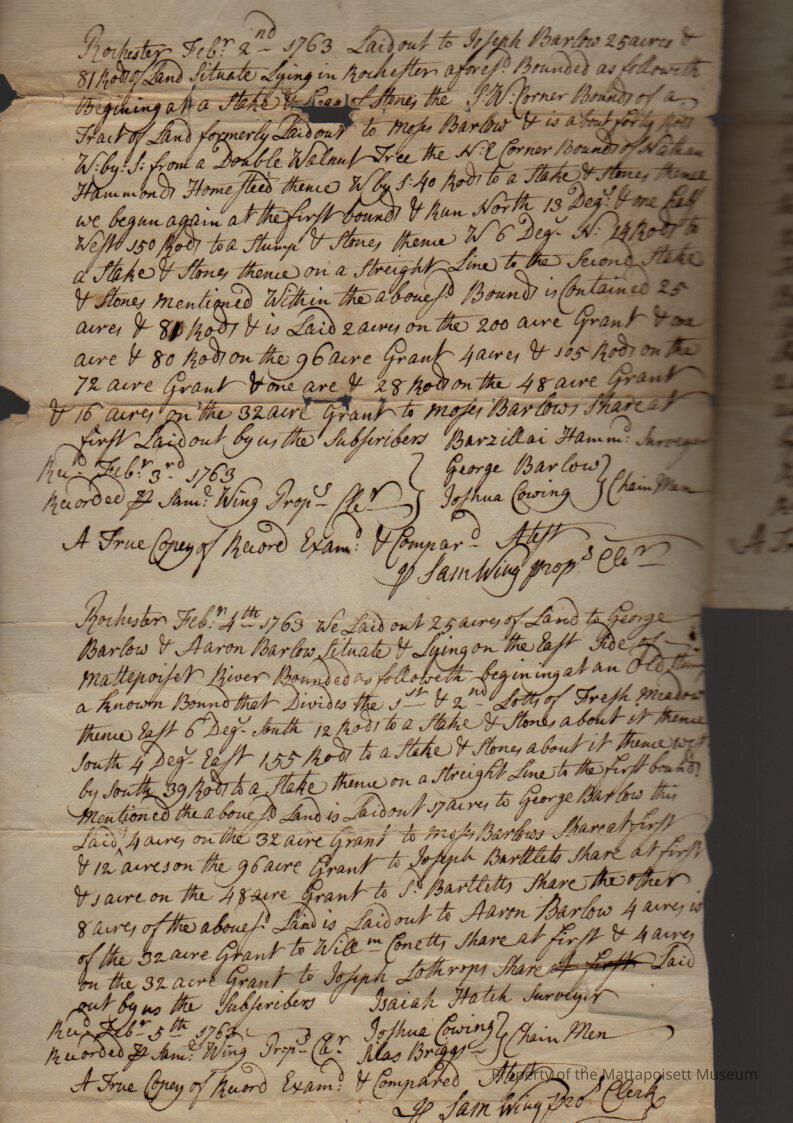 Rochester Febr. 2nd 1763 Laid out to Joseph Barlow 25 acres &
81 Rods of Land Situate Lying in Rochester aforesd. Bounded as followeth
Begining at a Stake & Heap of Stones the S.W. Corner Bounds of a
Tract of Land formerly Laid out to Moses Barlow & is about forty Rods
W: by: S: from a Double Walnut Tree the N: E Corner Bounds of Nathan
Hammonds Homesteed thence W by S: 40 Rods to a Stake & Stones thence
we began again at the first bounds & Run North 13 Degs. & one half
West 150 Rods to a Stump & Stones thence W 6 Degs. N: 14 Rods to
a Stake & Stones thence on a Streight Line to the Second Stake
& Stones mentioned Within the abovesd. Bounds is Contained 25
acres & 81 Rods & is Laid 2 acres on the 200 acre Grant & one
acre & 80 Rods on the 96 acre Grant 4 acres & 105 Rods on the
72 acre Grant & one are & 28 Rods on the 48 acre Grant
& 16 acres on the 32 acre Grant to Moses Barlows Share at
first Laid out by us the Subscribers Barzillai Hammd. Surveyer
Recd. Febr. 3rd 1763 } George Barlow }
Recorded P Saml. Wing Props. Cler } Joshua Cowing } Chain Men
A True Copey of Record Examd. & Compard. Attest
P Sam Wing props. Cler
Rochester Febr. 4th 1763 We Laid out 25 acres of Land to George
Barlow & Aaron Barlow Situate & Lying on the East Side of
Mattepoiset River Bounded as followeth begining at an Old Stump
a Known Bound that Divides the 1st & 2nd Lotts of Fresh Meadow
thence East 6 Degs. South 12 Rods to a Stake & Stones about it thence
South 4 Degs. East 155 Rods to a Stake & Stones about it thence west
by South 39 Rods to a Stake thence on a Streight Line to the first bounds
Mentioned the abovesd Land is Laid out 17 acres to George Barlow this
Laid 4 acres on the 32 acre Grant to Moses Barlows Share at first
& 12 acres on the 96 acre Grant to Joseph Barttlets Share at first
& 1 acre on the 48 acre Grant to Sd. Bartletts Share the other
8 acres of the abovesd. Land is Laid out to Aaron Barlow 4 acres is
of the 32 acre Grant to Willm Conetts Share at first & 4 acres
on the 32 acre Grant to Joseph Lothrops Share at first Laid
out by us the Subscribers Isaiah Hatch Surveyer
Recd. Febr. 5th 1763 Joshua Cowing }
Recorded P Saml. Wing Props. Cler. Silas Briggs } Chain Men
A True Copey of Record Examd. & Compared Attest
P Sam Wing pros. Clerk
Property of the Mattapoisett Museum